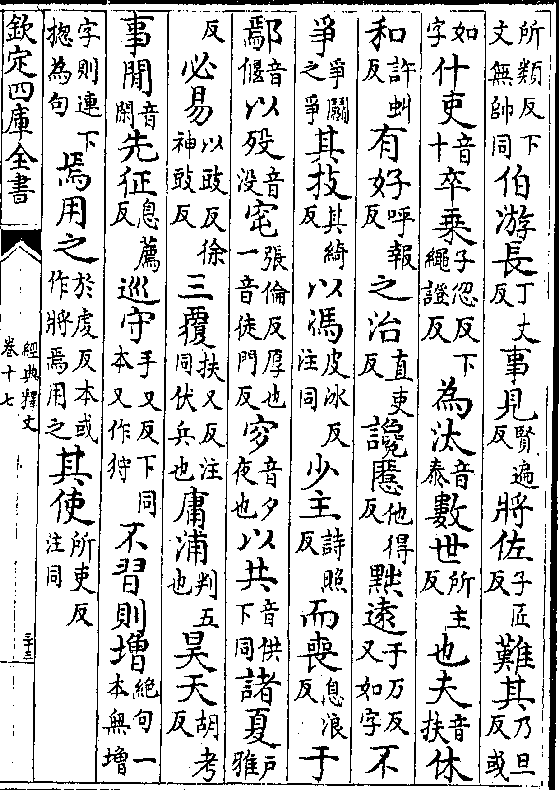 所類反下文無帥同伯游長丁丈反事見賢遍反將佐子匠反難其乃旦反或
如字什吏音十卒乗子忽反下繩證反為汰音泰數世所主反也夫音扶休
和許虯反有好呼報反之治直吏反讒慝他得反黜逺于万反又如字不
爭爭鬭之爭其技其綺反以馮皮冰反注同少主詩照反而喪息浪反于
鄢音偃以殁音没窀張倫反厚也一音徒門反穸音夕夜也以共音供下同諸夏戸雅
反必易以豉反徐神豉反三覆扶又反注同伏兵也庸浦判五也昊天胡考反
事閒音閑先征息薦反巡守手又反下同本又作狩不習則増絶句一本無増
字則連下揔為句焉用之於虔反本或作將焉用之其使所吏反注同
欽定四庫全書
經典釋文
卷十七
二十三